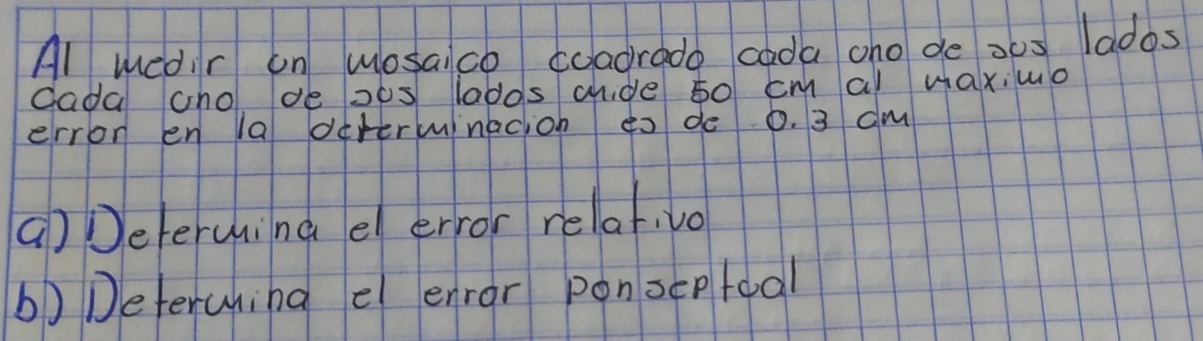 Al medir un mosaico cuadrado cada uno de sus lados
cada uno de sus lados mide 50 cm al maximo
error en la determinacion es de 0.3 cm
a) Determina el error relativo
b) Determina el error ponseptual